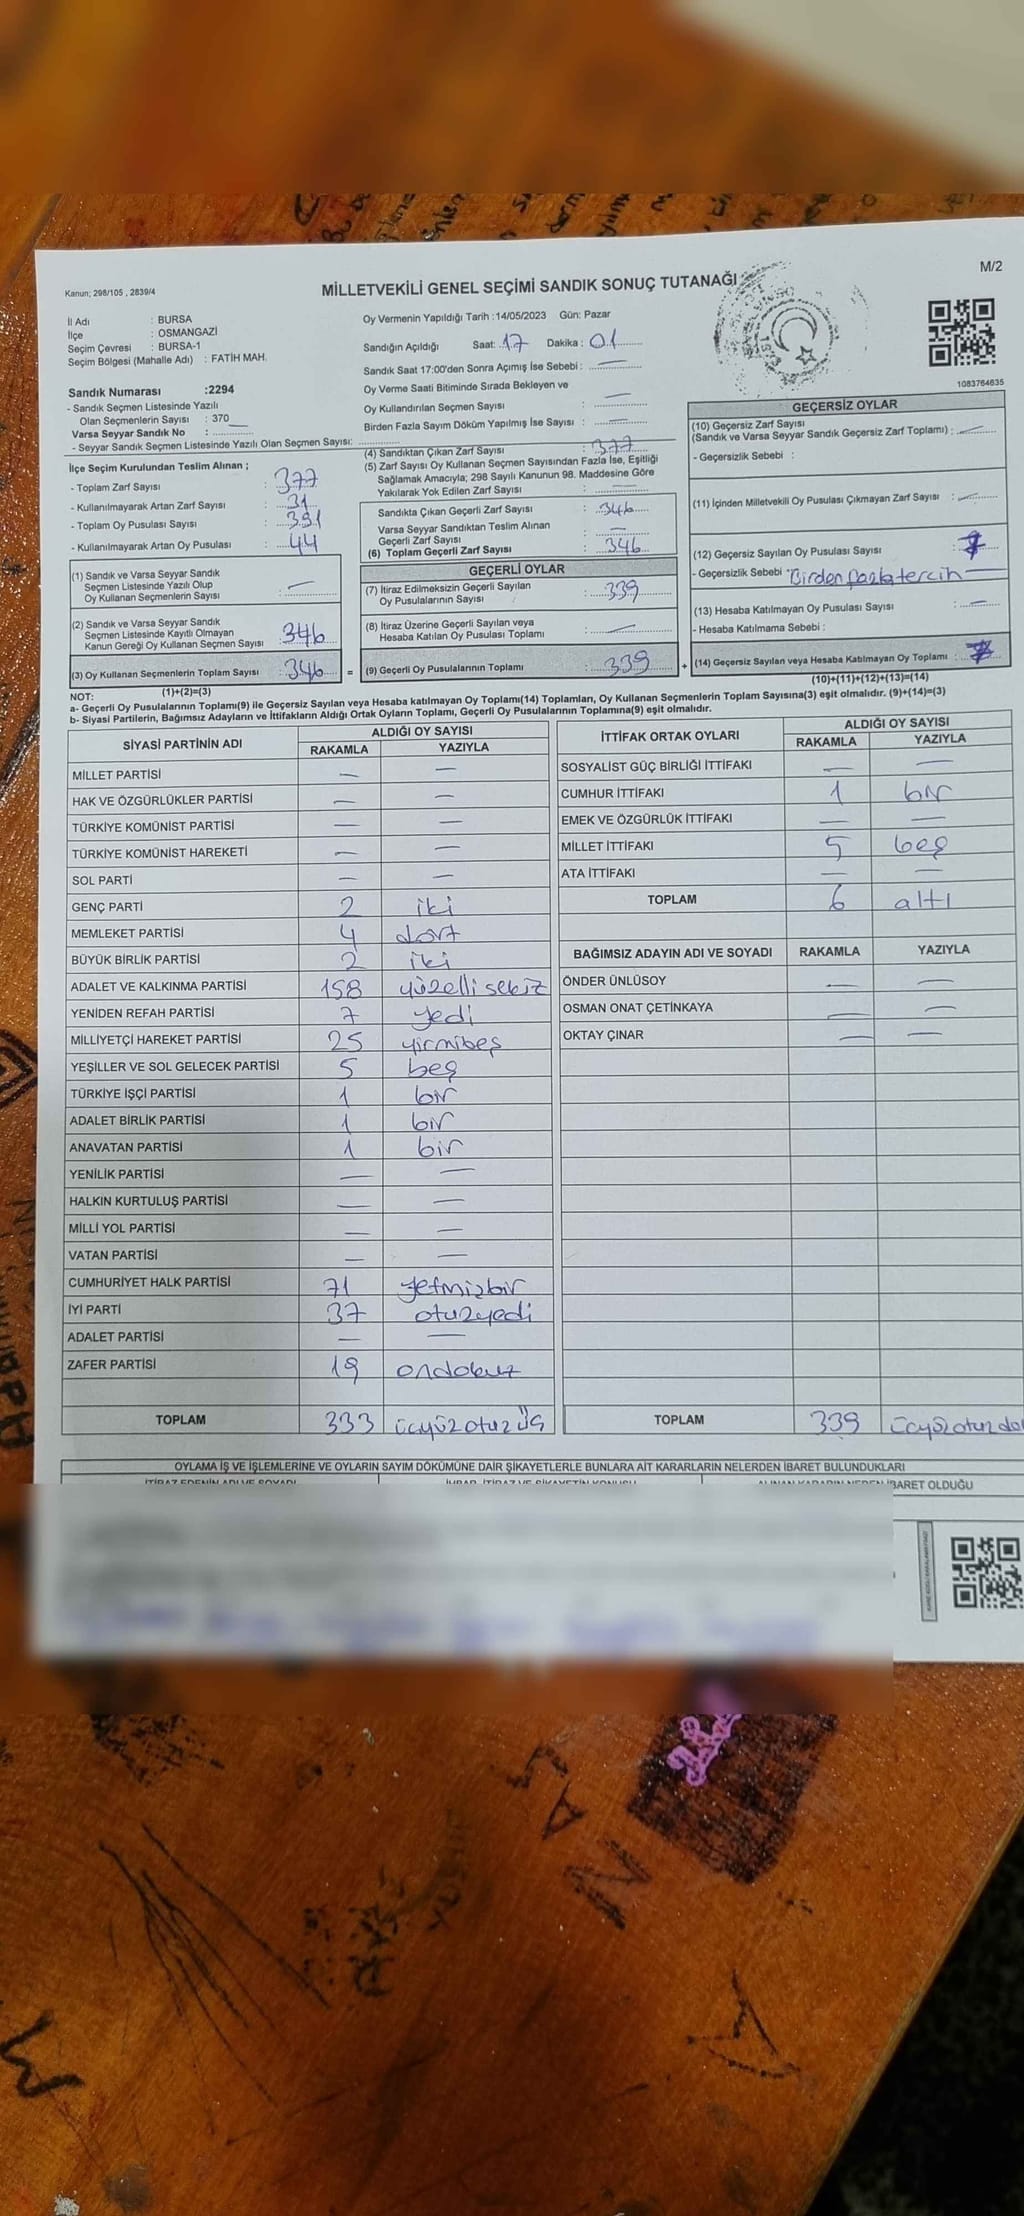 M/2
Kanun; 298/105 , 2839/4
MİLLETVEKİLİ GENEL SEÇİMİ SANDIK SONUÇ TUTANAĞI
İl Adı : BURSA
İlçe : OSMANGAZİ
Seçim Çevresi : BURSA-1
Seçim Bölgesi (Mahalle Adı) : FATİH MAH.
Sandık Numarası :2294
- Sandık Seçmen Listesinde Yazılı
Olan Seçmenlerin Sayısı : 370
Varsa Seyyar Sandık No :
- Seyyar Sandık Seçmen Listesinde Yazılı Olan Seçmen Sayısı:
Oy Vermenin Yapıldığı Tarih :14/05/2023 Gün: Pazar
Sandığın Açıldığı Saat: 17 Dakika : 01
Sandık Saat 17:00'den Sonra Açımış İse Sebebi : —
Oy Verme Saati Bitiminde Sırada Bekleyen ve
Oy Kullandırılan Seçmen Sayısı : —
Birden Fazla Sayım Döküm Yapılmış İse Sayısı : —
1083764635
İlçe Seçim Kurulundan Teslim Alınan ;
- Toplam Zarf Sayısı : 377
- Kullanılmayarak Artan Zarf Sayısı : 31
- Toplam Oy Pusulası Sayısı : 391
- Kullanılmayarak Artan Oy Pusulası : 44
(1) Sandık ve Varsa Seyyar Sandık
Seçmen Listesinde Yazılı Olup
Oy Kullanan Seçmenlerin Sayısı : —
(2) Sandık ve Varsa Seyyar Sandık
Seçmen Listesinde Kayıtlı Olmayan
Kanun Gereği Oy Kullanan Seçmen Sayısı : 346
(3) Oy Kullanan Seçmenlerin Toplam Sayısı : 346 =
(1)+(2)=(3)
(4) Sandıktan Çıkan Zarf Sayısı : 377
(5) Zarf Sayısı Oy Kullanan Seçmen Sayısından Fazla İse, Eşitliği
Sağlamak Amacıyla; 298 Sayılı Kanunun 98. Maddesine Göre
Yakılarak Yok Edilen Zarf Sayısı : —
Sandıkta Çıkan Geçerli Zarf Sayısı : 346
Varsa Seyyar Sandıktan Teslim Alınan
Geçerli Zarf Sayısı : —
(6) Toplam Geçerli Zarf Sayısı : 346
GEÇERLİ OYLAR
(7) İtiraz Edilmeksizin Geçerli Sayılan
Oy Pusulalarının Sayısı : 339
(8) İtiraz Üzerine Geçerli Sayılan veya
Hesaba Katılan Oy Pusulası Toplamı : —
(9) Geçerli Oy Pusulalarının Toplamı : 339 +
GEÇERSİZ OYLAR
(10) Geçersiz Zarf Sayısı
(Sandık ve Varsa Seyyar Sandık Geçersiz Zarf Toplamı) : —
- Geçersizlik Sebebi :
(11) İçinden Milletvekili Oy Pusulası Çıkmayan Zarf Sayısı : —
(12) Geçersiz Sayılan Oy Pusulası Sayısı : 7
- Geçersizlik Sebebi : Birden fazla tercih
(13) Hesaba Katılmayan Oy Pusulası Sayısı : —
- Hesaba Katılmama Sebebi :
(14) Geçersiz Sayılan veya Hesaba Katılmayan Oy Toplamı : 7
(10)+(11)+(12)+(13)=(14)
NOT:
a- Geçerli Oy Pusulalarının Toplamı(9) ile Geçersiz Sayılan veya Hesaba katılmayan Oy Toplamı(14) Toplamları, Oy Kullanan Seçmenlerin Toplam Sayısına(3) eşit olmalıdır. (9)+(14)=(3)
b- Siyasi Partilerin, Bağımsız Adayların ve İttifakların Aldığı Ortak Oyların Toplamı, Geçerli Oy Pusulalarının Toplamına(9) eşit olmalıdır.
SİYASİ PARTİNİN ADI ALDIĞI OY SAYISI
RAKAMLA YAZIYLA
MİLLET PARTİSİ — —
HAK VE ÖZGÜRLÜKLER PARTİSİ — —
TÜRKİYE KOMÜNİST PARTİSİ — —
TÜRKİYE KOMÜNİST HAREKETİ — —
SOL PARTİ — —
GENÇ PARTİ 2 iki
MEMLEKET PARTİSİ 4 dört
BÜYÜK BİRLİK PARTİSİ 2 iki
ADALET VE KALKINMA PARTİSİ 158 yüzelli sekiz
YENİDEN REFAH PARTİSİ 7 yedi
MİLLİYETÇİ HAREKET PARTİSİ 25 yirmibeş
YEŞİLLER VE SOL GELECEK PARTİSİ 5 beş
TÜRKİYE İŞÇİ PARTİSİ 1 bir
ADALET BİRLİK PARTİSİ 1 bir
ANAVATAN PARTİSİ 1 bir
YENİLİK PARTİSİ — —
HALKIN KURTULUŞ PARTİSİ — —
MİLLİ YOL PARTİSİ — —
VATAN PARTİSİ — —
CUMHURİYET HALK PARTİSİ 71 yetmişbir
İYİ PARTİ 37 otuzyedi
ADALET PARTİSİ — —
ZAFER PARTİSİ 19 ondokuz
TOPLAM 333 üçyüz otuz üç
İTTİFAK ORTAK OYLARI ALDIĞI OY SAYISI
RAKAMLA YAZIYLA
SOSYALİST GÜÇ BİRLİĞİ İTTİFAKI — —
CUMHUR İTTİFAKI 1 bir
EMEK VE ÖZGÜRLÜK İTTİFAKI — —
MİLLET İTTİFAKI 5 beş
ATA İTTİFAKI — —
TOPLAM 6 altı
BAĞIMSIZ ADAYIN ADI VE SOYADI RAKAMLA YAZIYLA
ÖNDER ÜNLÜSOY — —
OSMAN ONAT ÇETİNKAYA — —
OKTAY ÇINAR — —
TOPLAM 339 üçyüz otuz do
OYLAMA İŞ VE İŞLEMLERİNE VE OYLARIN SAYIM DÖKÜMÜNE DAİR ŞİKAYETLERLE BUNLARA AİT KARARLARIN NELERDEN İBARET BULUNDUKLARI
İTİRAZ EDENİN ADI VE SOYADI İHBAR, İTİRAZ VE ŞİKAYETİN KONUSU ALINAN KARARIN NEDEN İBARET OLDUĞU